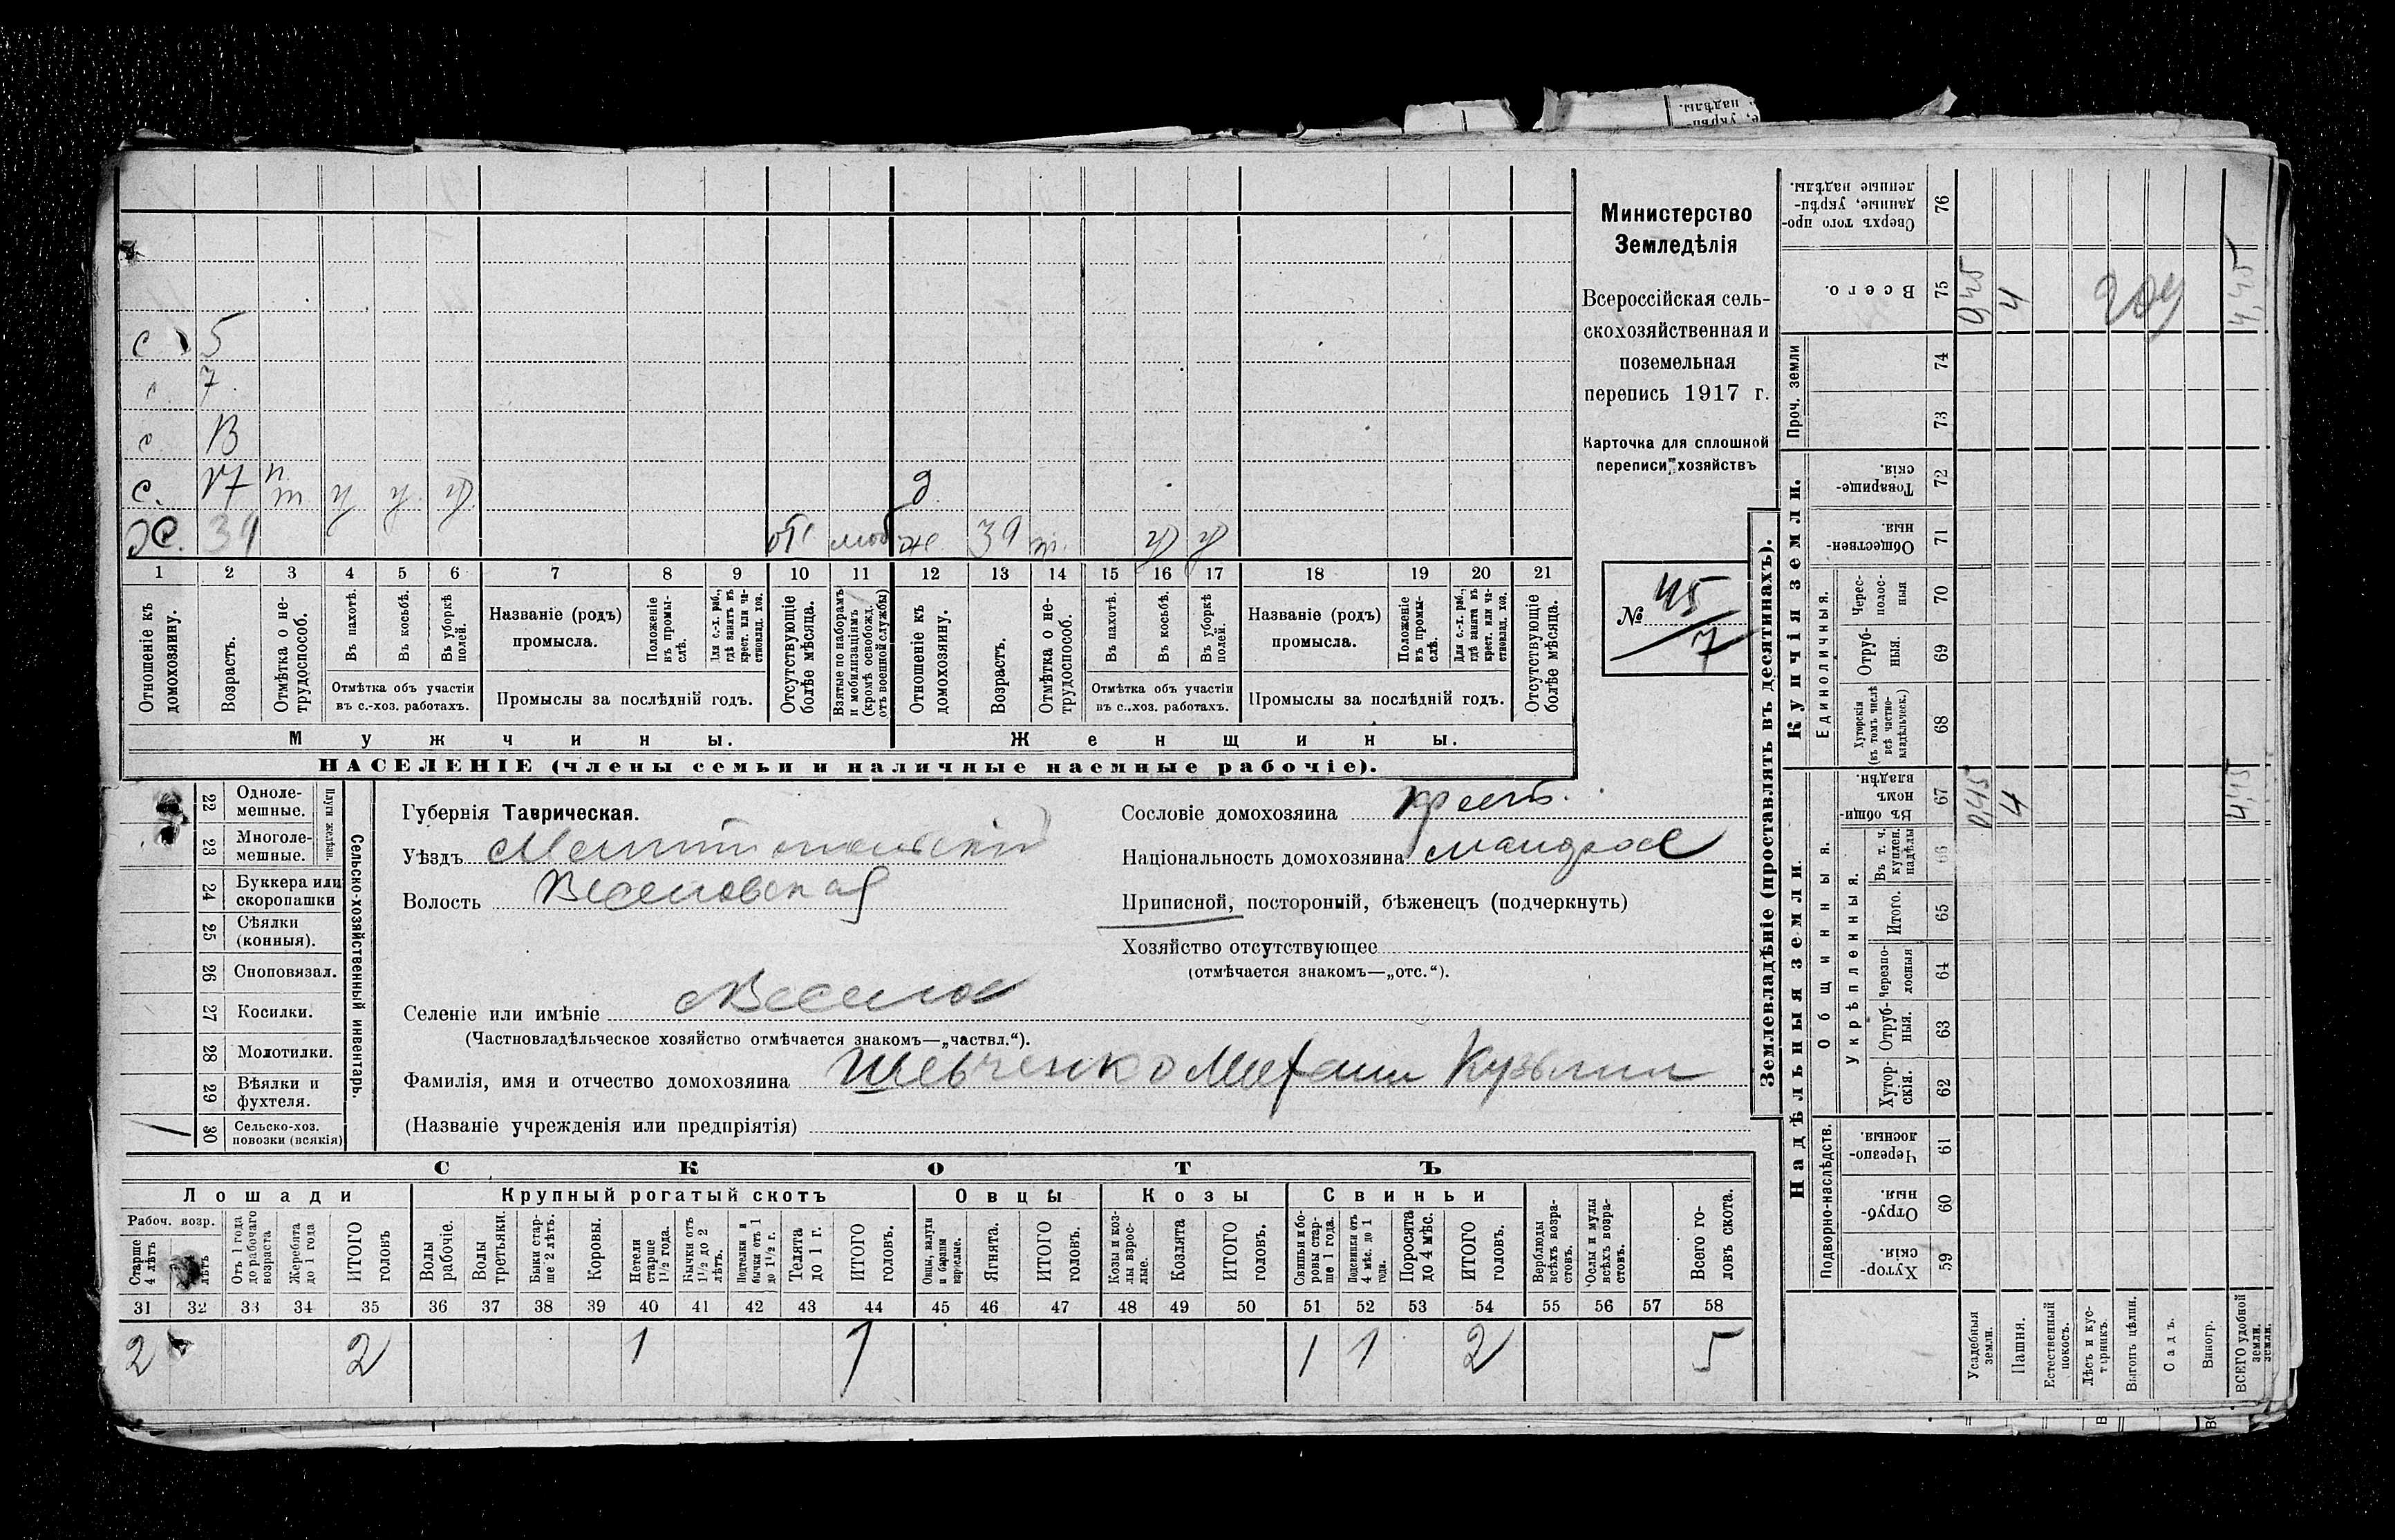 с 5
с 7
с 13
с. 17 п. т у у у д.
х. 39 отс моб ж 39 т. у у
1 2 3 4 5 6 7 8 9 10 11 12 13 14 15 16 17 18 19 20 21
Отношеніе къ домохозяину.
Возрастъ.
Отмѣтка о не-трудоспособ.
Въ пахотѣ.
Въ косьбѣ.
Въ уборкѣ полей.
Отмѣтка объ участіи
въ с.-хоз. работахъ.
Названіе (родъ)
промысла.
Положеніе въ промы-слѣ.
Для с.-х. раб., гдѣ занятъ въ крест. или ча-стновлад. хоз.
Промыслы за послѣдній годъ.
Отсутствующіе болѣе мѣсяца.
Взятые по наборамъ и мобилизаціямъ (кромѣ освобожд. отъ военной службы)
Отношеніе къ домохозяину.
Возрастъ.
Отмѣтка о не-трудоспособ.
Въ пахотѣ.
Въ косьбѣ.
Въ уборкѣ полей.
Отмѣтка объ участіи
въ с.-хоз. работахъ.
Названіе (родъ)
промысла.
Положеніе въ промы-слѣ.
Для с.-х. раб., гдѣ занята въ крест. или ча-стновлад. хоз.
Промыслы за послѣдній годъ.
Отсутствующіе болѣе мѣсяца.
Мужчины.
Женщины.
НАСЕЛЕНІЕ (члены семьи и наличные наемные рабочіе).
Министерство
Земледѣлія
Всероссійская сель-
скохозяйственная и
поземельная
перепись 1917 г.
Карточка для сплошной
переписи хозяйствъ
№ 45
7
Сельско-хозяйственный инвентарь.
Плуги желѣзн.
22 Одноле-мешные.
23 Многоле-мешные.
24 Буккера или скоропашки
25 Сѣялки (конныя).
26 Сноповязал.
27 Косилки.
28 Молотилки.
29 Вѣялки и фухтеля.
30 Сельско-хоз. повозки (всякія)
Губернія Таврическая.
Уѣздъ Мелитопольский
Волость Веселовская
Селеніе или имѣніе с Веселое
(Частновладѣльческое хозяйство отмѣчается знакомъ—„частвл.“).
Фамилія, имя и отчество домохозяина Шевченко Михаил Кузьмин
(Названіе учрежденія или предпріятія)
Сословіе домохозяина крест.
Національность домохозяина малорос
Приписной, посторонній, бѣженецъ (подчеркнуть)
Хозяйство отсутствующее
(отмѣчается знакомъ—„отс.“).
СКОТЪ
Лошади
Крупный рогатый скотъ
Овцы
Козы
Свиньи
Рабоч. возр.
Старше 4 лѣтъ
лѣтъ
Отъ 1 года до рабочаго возраста
Жеребята до 1 года
ИТОГО головъ
Волы рабочіе.
Волы третьяки.
Быки стар-ше 2 лѣтъ.
Коровы.
Нетели старше 1 1/2 года.
Бычки отъ 1 1/2 до 2 лѣтъ.
Подтелки и бычки отъ 1 до 1 1/2 г.
Телята до 1 г.
ИТОГО головъ.
Овцы, валухи и бараны взрослые.
Ягнята.
ИТОГО головъ.
Козы и коз-лы взрос-лые.
Козлята
ИТОГО головъ.
Свиньи и бо-ровы стар-ше 1 года.
Подсвинки отъ 4 мѣс. до 1 года.
Поросята до 4 мѣс.
ИТОГО головъ.
Верблюды всѣхъ возра-стовъ.
Ослы и мулы всѣхъ возра-стовъ.
Всего го-ловъ скота.
31 32 33 34 35 36 37 38 39 40 41 42 43 44 45 46 47 48 49 50 51 52 53 54 55 56 57 58
2 2 1 1 1 1 2 5
Землевладѣніе (проставлять въ десятинахъ).
Надѣльныя земли.
Купчія земли.
Проч. земли
Подворно-наслѣдств.
Общинныя.
Укрѣпленныя.
Единоличныя.
Сверхъ того про-данные, укрѣп-ленные надѣлы. 76
Всего. 75
74
73
Товарище-скія. 72
Обществен-ныя. 71
Черес-полос-ныя 70
Отруб-ныя. 69
Хуторскія (въ томъ числѣ всѣ частно-владѣльческ.) 68
Въ общин-номъ владѣн. 67
Въ т. ч. куплен. надѣлы 66
Итого. 65
Черезпо-лосныя 64
Отруб-ныя. 63
Хутор-скія. 62
Черезпо-лосныя. 61
Отруб-ныя. 60
Хутор-скія. 59
Усадебныя земли.
Пашня.
Естественный покосъ.
Лѣсъ и кус-тарникъ.
Выгонъ цѣлин.
Садъ.
Виногр.
ВСЕГО удобной земли.
0,45 4 4,45
0,45 4 4,45